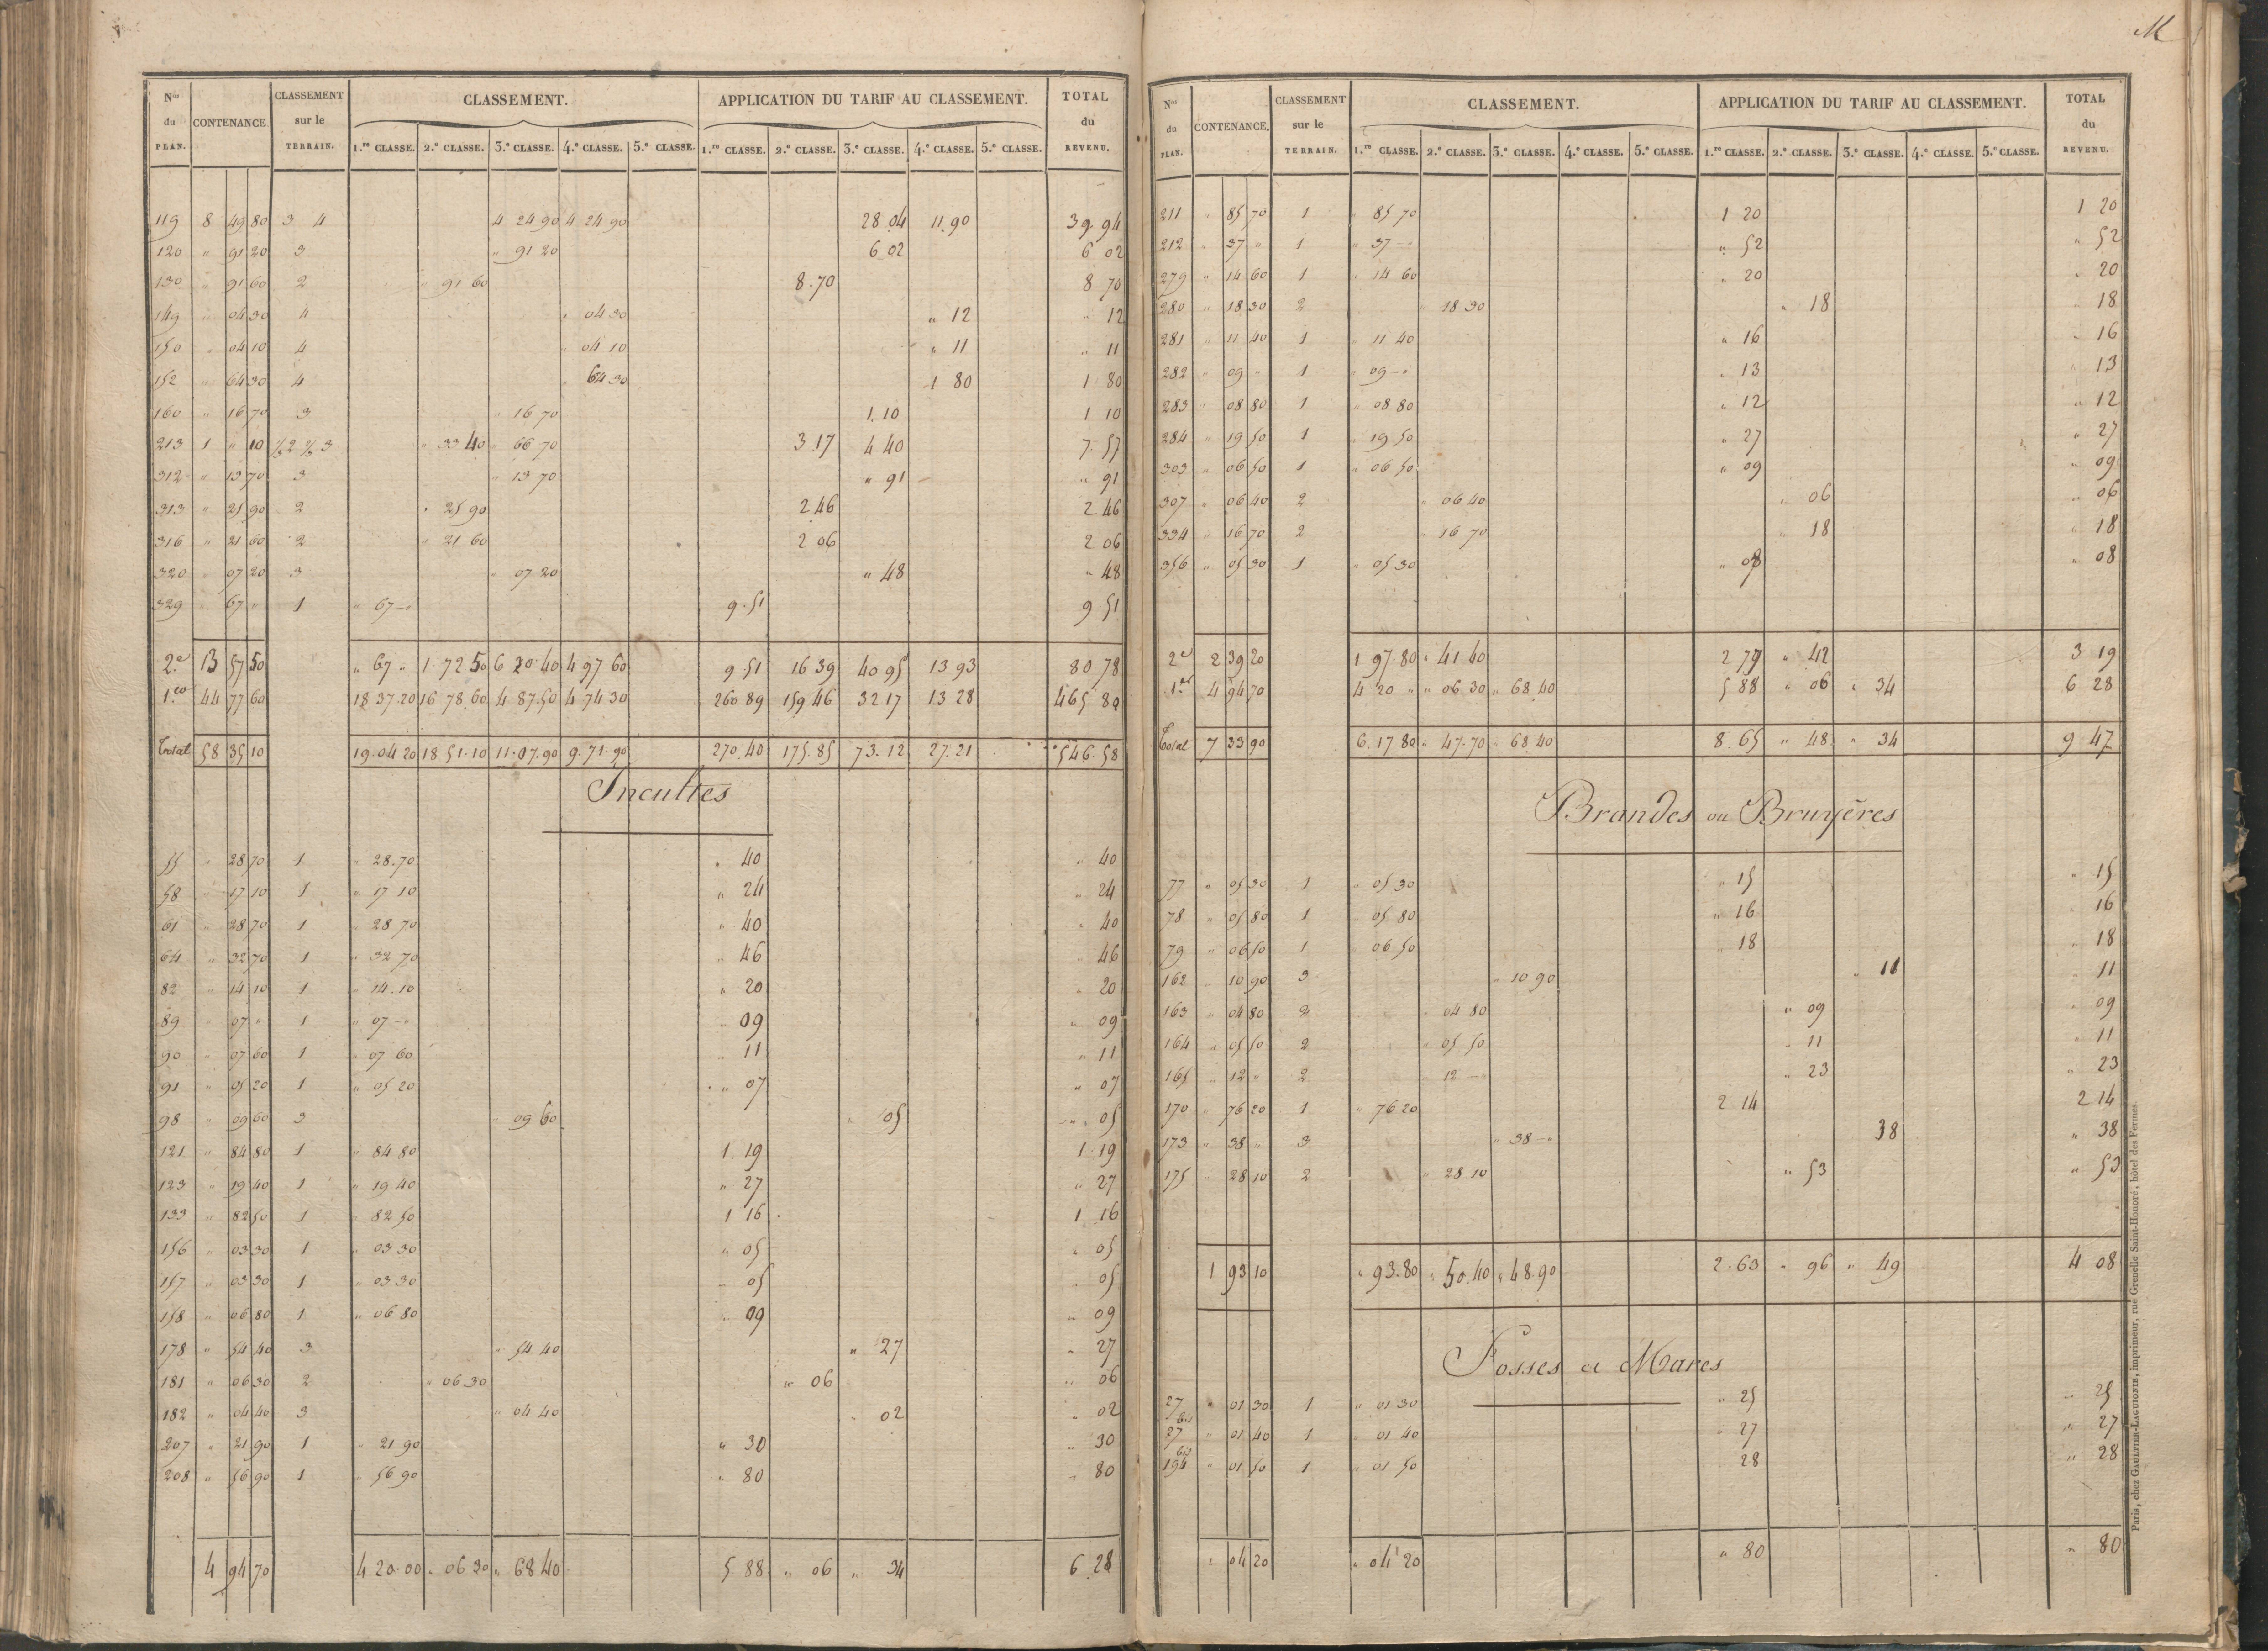 M
N.os du PLAN. CONTENANCE. CLASSEMENT sur le TERRAIN. CLASSEMENT. APPLICATION DU TARIF AU CLASSEMENT. TOTAL du REVENU.
1.re CLASSE. 2.e CLASSE. 3.e CLASSE. 4.e CLASSE. 5.e CLASSE. 1.re CLASSE. 2.e CLASSE. 3.e CLASSE. 4.e CLASSE. 5.e CLASSE.
119 8 49 80 3 4 4 24 90 4 24 90 28.04 11.90 39.94
120 " 91 20 3 " 91 20 6 02 6 02
130 " 91 60 2 " 91 60 8.70 8 70
149 " 04 30 4 " 04 30 " 12 " 12
150 " 04 10 4 " 04 10 " 11 " 11
152 " 64 30 4 " 64 30 1 80 1 80
160 " 16 70 3 " 16 70 1.10 1 10
213 1 " 10 1/3 2 2/3 3 " 33 40 " 66 70 3 17 4 40 7.57
312 " 13 70 3 " 13 70 " 91 " 91
313 " 25 90 2 " 25 90 2 46 2 46
316 " 21 60 2 " 21 60 2 06 2 06
320 " 07 20 3 " 07 20 " 48 " 48
329 " 67 " 1 " 67 — " 9.51 9 51
2.e 13 57 50 " 67 " 1.72 50 6 20 40 4 97 60 9 51 16 39 40 95 13 93 80 78
1.re 44 77 60 18 37.20 16 78 60 4 87.50 4 74 30 260 89 159 46 32 17 13 28 465 80
Total 58 35 10 19.04 20 18.51.10 11.07.90 9.71.90 270.40 175.85 73.12 27.21 546.58
Incultes
55 " 28 70 1 " 28.70 " 40 " 40
58 " 17 10 1 " 17 10 " 24 " 24
61 " 28 70 1 " 28 70 " 40 " 40
64 " 32 70 1 " 32 70 " 46 " 46
82 " 14 10 1 " 14.10 " 20 " 20
89 " 07 " 1 " 07 — " " 09 " 09
90 " 07 60 1 " 07 60 " 11 " 11
91 " 05 20 1 " 05 20 " 07 " 07
98 " 09 60 3 " 09 60 " 05 " 05
121 " 84 80 1 " 84 80 1.19 1.19
123 " 19 40 1 " 19 40 " 27 " 27
133 " 82 50 1 " 82 50 1 16 1 16
156 " 03 30 1 " 03 30 " 05 " 05
157 " 03 30 1 " 03 30 " 05 " 05
158 " 06 80 1 " 06 80 " 09 " 09
178 " 54 40 3 " 54 40 " 27 " 27
181 " 06 30 2 " 06 30 " 06 " 06
182 " 04 40 3 " 04 40 " 02 " 02
207 " 21 90 1 " 21 90 " 30 " 30
208 " 56 90 1 " 56 90 " 80 " 80
4 94 70 4 20.00 " 06 30 " 68 40 5 88 " 06 " 34 6 28
N.os du PLAN. CONTENANCE. CLASSEMENT sur le TERRAIN. CLASSEMENT. APPLICATION DU TARIF AU CLASSEMENT. TOTAL du REVENU.
1.re CLASSE. 2.e CLASSE. 3.e CLASSE. 4.e CLASSE. 5.e CLASSE. 1.re CLASSE. 2.e CLASSE. 3.e CLASSE. 4.e CLASSE. 5.e CLASSE.
211 " 85 70 1 " 85 70 1 20 1 20
212 " 37 " 1 " 37 — " " 52 " 52
279 " 14 60 1 " 14 60 " 20 " 20
280 " 18 30 2 " 18 30 " 18 " 18
281 " 11 40 1 " 11 40 " 16 " 16
282 " 09 " 1 " 09 — " " 13 " 13
283 " 08 80 1 " 08 80 " 12 " 12
284 " 19 50 1 " 19 50 " 27 " 27
303 " 06 50 1 " 06 50 " 09 " 09
307 " 06 40 2 " 06 40 " 06 " 06
334 " 16 70 2 " 16 70 " 18 " 18
356 " 05 30 1 " 05 30 " 08 " 08
2.e 2 39 20 1 97.80 " 41 40 2 79 " 42 3 19
1.re 4 94 70 4 20 " " 06.30 " 68 40 5 88 " 06 " 34 6 28
Total 7 33 90 6.17 80 " 47.70 " 68 40 8.65 " 48 " 34 9 47
Brandes ou Bruyères
77 " 05 30 1 " 05 30 " 15 " 15
78 " 05 80 1 " 05 80 " 16 " 16
79 " 06 50 1 " 06 50 " 18 " 18
162 " 10 90 3 " 10 90 " 11 " 11
163 " 04 80 2 " 04 80 " 09 " 09
164 " 05 50 2 " 05 50 " 11 " 11
165 " 12 " 2 " 12 — " " 23 " 23
170 " 76 20 1 " 76 20 2 14 2 14
173 " 38 " 3 " 38 — " 38 " 38
175 " 28 10 2 " 28 10 " 53 " 53
1 93 10 " 93.80 " 50.40 " 48.90 2.63 " 96 " 49 4 08
Fosses et Mares
27 " 01 30 1 " 01 30 " 25 " 25
27 bis " 01 40 1 " 01 40 " 27 " 27
194 bis " 01 50 1 " 01 50 28 " 28
" 04 20 " 04 20 " 80 " 80
Paris, chez GAULTIER-LAGUIONIE, imprimeur, rue Grenelle Saint-Honoré, hôtel des Fermes.